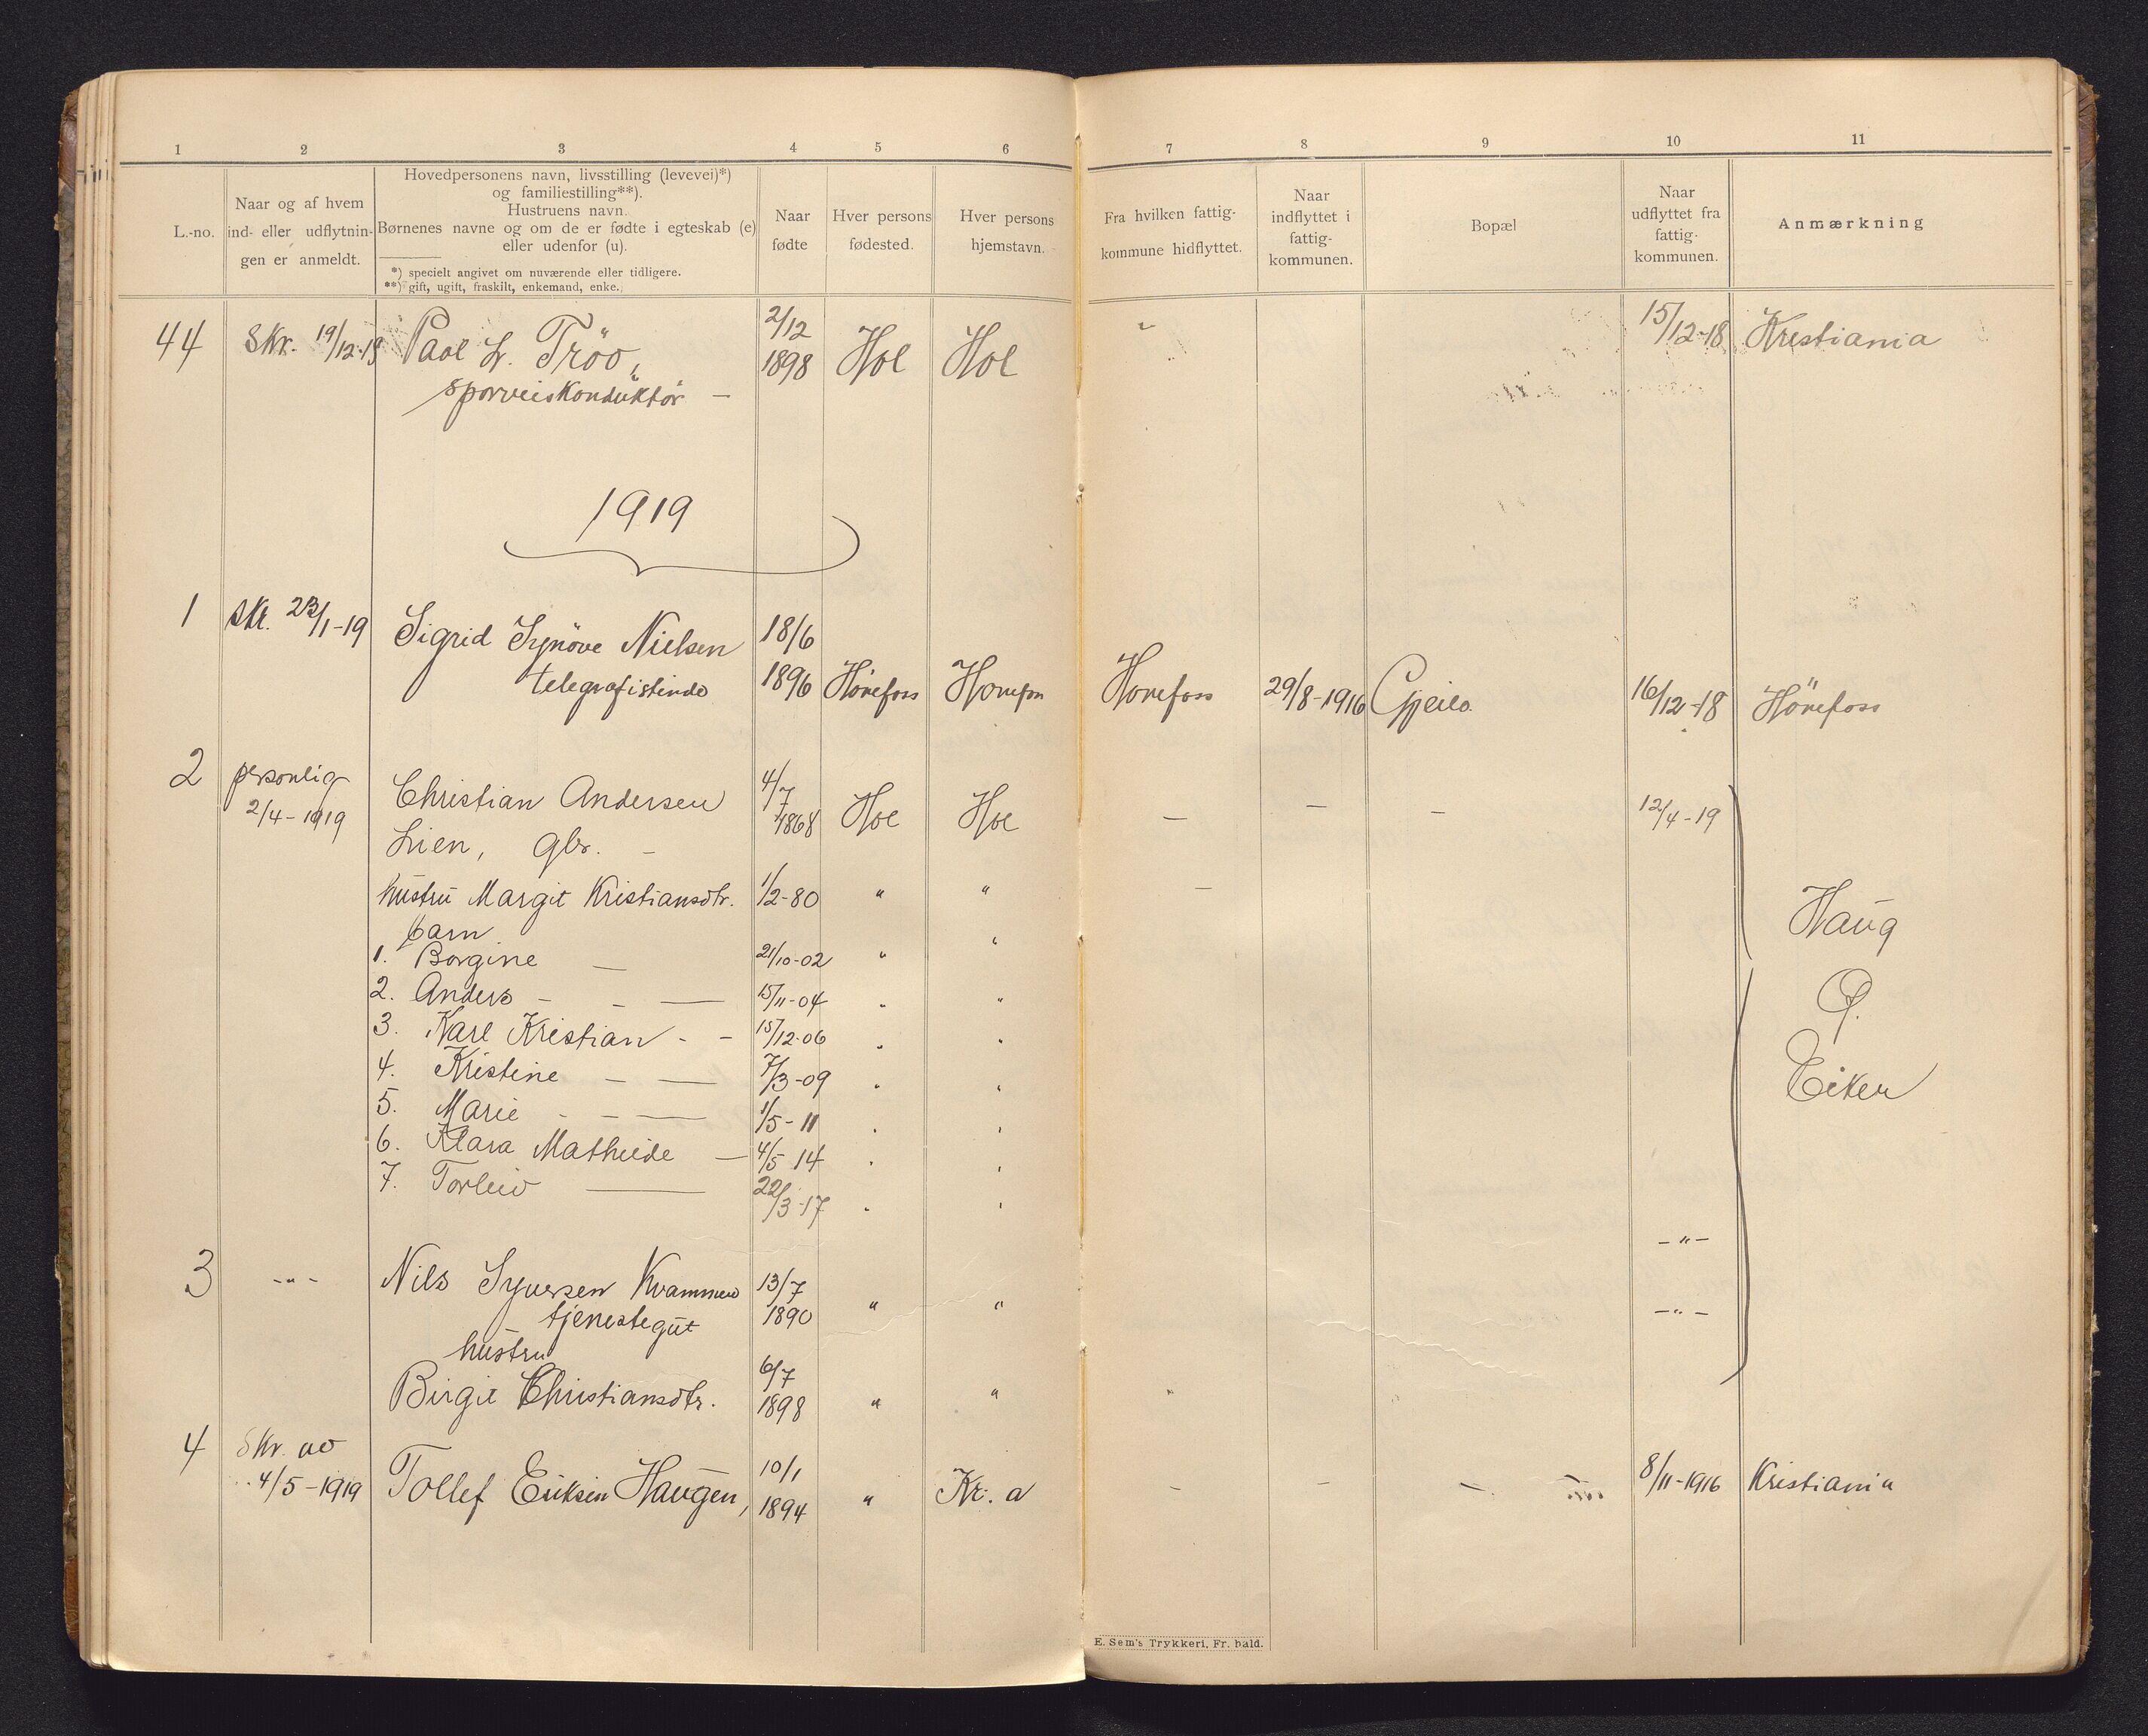 1 2 3 4 5 6 7 8 9 10 11
L.-no.
Naar og af hvem
ind- eller udflytnin-
gen er anmeldt.
Hovedpersonens navn, livsstilling (levevei)*)
og familiestilling**).
Hustruens navn.
Børnenes navne og om de er fødte i egteskab (e)
eller udenfor (u).
*) specielt angivet om nuværende eller tidligere.
**) gift, ugift, fraskilt, enkemand, enke.
Naar
fødte
Hver persons
fødested.
Hver persons
hjemstavn.
Fra hvilken fattig-
kommune hidflyttet.
Naar
indflyttet i
fattig-
kommunen.
Bopæl
Naar
udflyttet fra
fattig-
kommunen.
Anmærkning
44 Skr. 19/12-18 Paal L. Tröo, 2/12 1898 Hol Hol " 15/12-18 Kristiania
sporveiskonduktør -
1919
1 Skr. 23/1-19 Sigrid Synöve Nielsen 18/6
telegrafistinde 1896 Hönefoss Honefos Honefoss 29/8-1916 Gjeilo 16/12-18 Hönefoss
2 personlig Christian Andersen 4/7
2/4-1919 1868 Hol Hol - - - 12/4-19
Lien, gbr. -
hustru Margit Kristiansdtr. 1/2-80 " " - Haug
barn
1. Borgine - 21/10-02 " "
2. Anders - - - 15/11-04 " " Ø.
3. Karl Kristian - - 15/12-06 " "
4. Kristine - - 7/3-09 " " Eiker
5. Marie - - - 1/5-11 " "
6. Klara Mathilde - 4/5 14 " "
7. Torleiv - 22/3-17 " "
-"-
3 -"- Nils Syversen Kvammen 13/7
tjenestegut 1890 " " -"-
hustru
Birgit Christiansdtr. 6/7 1898 " " "
4 Skr. av
4/5-1919 Tollef Eriksen Haugen, 10/1 1894 " Kr. a - - - 8/11-1916 Kristiania
E. Sem's Trykkeri, Fr. hald.